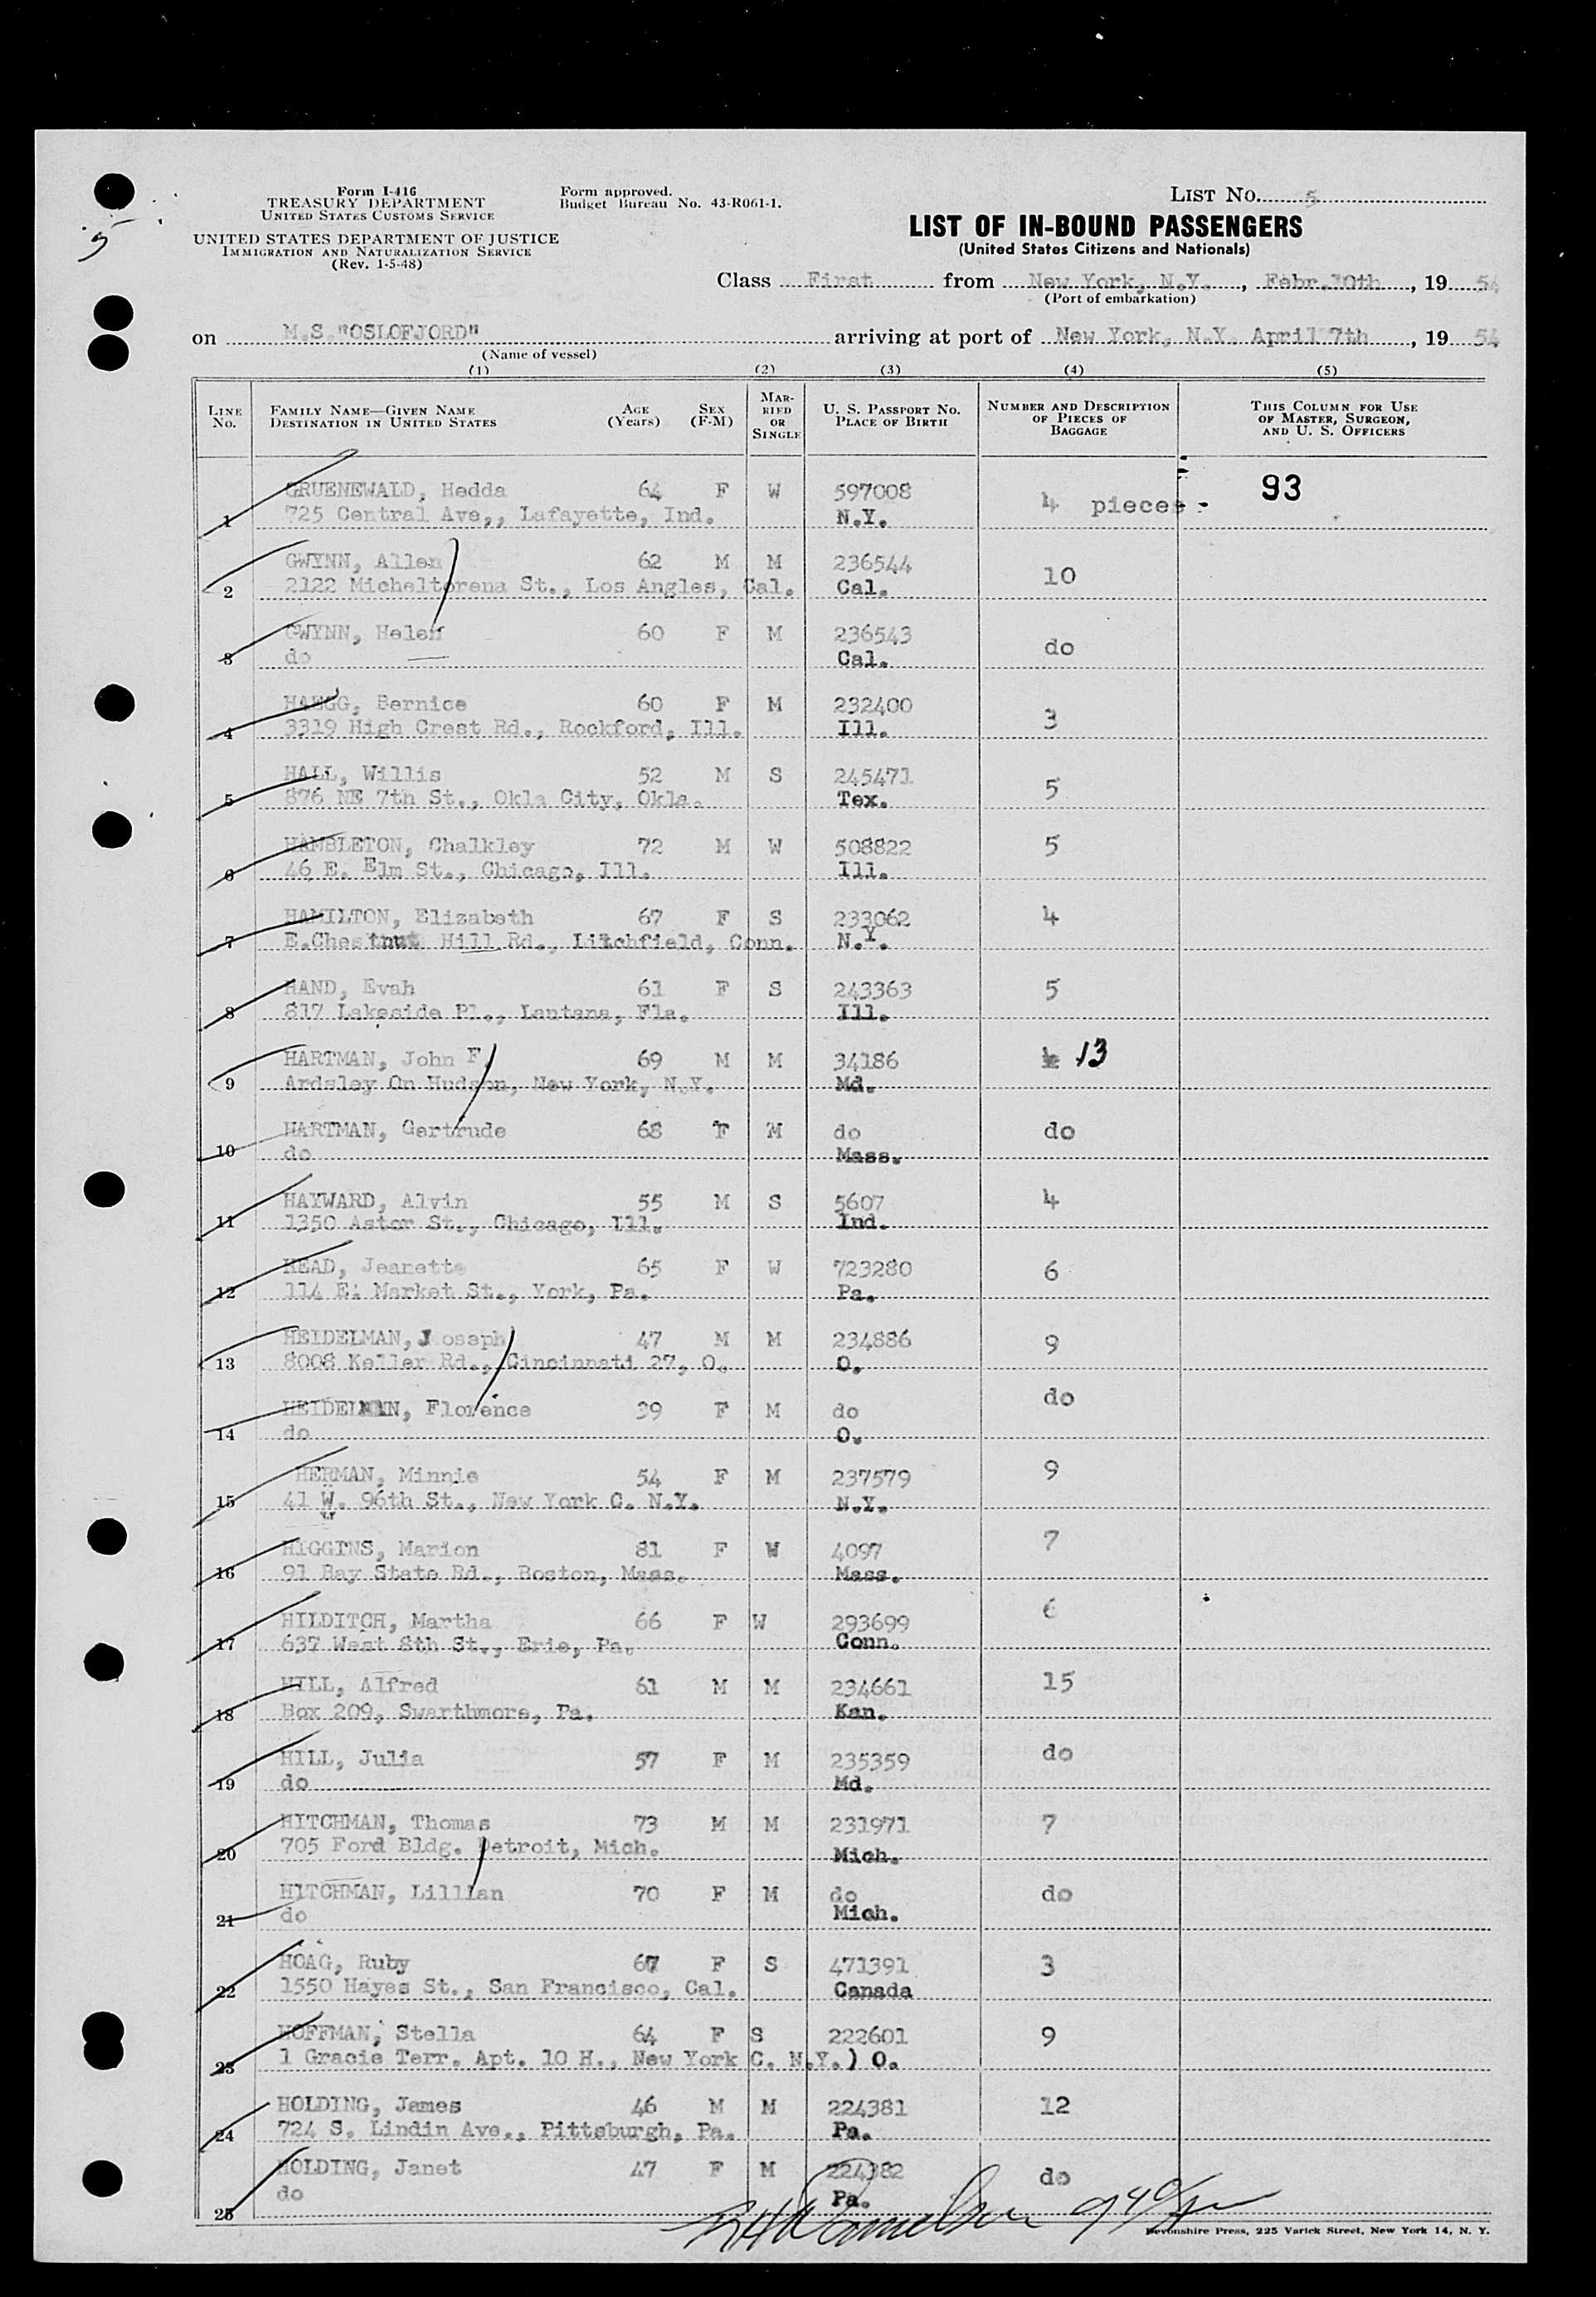 Form I-416
TREASURY DEPARTMENT
UNITED STATES CUSTOMS SERVICE
UNITED STATES DEPARTMENT OF JUSTICE
IMMIGRATION AND NATURALIZATION SERVICE
(Rev. 1-5-48)
Form approved.
Budget Bureau No. 43-R061-1.
LIST NO. 5
LIST OF IN-BOUND PASSENGERS
(United States Citizens and Nationals)
5
Class First from New York, N.Y., Febr.10th, 19 54
(Port of embarkation)
on M.S."OSLOFJORD" arriving at port of New York, N.Y. April 7th, 19 54
(Name of vessel)
(1) (2) (3) (4) (5)
LINE No. FAMILY NAME—GIVEN NAME DESTINATION IN UNITED STATES AGE (Years) SEX (F-M) MARRIED OR SINGLE U. S. PASSPORT NO. PLACE OF BIRTH NUMBER AND DESCRIPTION OF PIECES OF BAGGAGE THIS COLUMN FOR USE OF MASTER, SURGEON, AND U. S. OFFICERS
GRUENEWALD, Hedda 64 F W 597008 4 pieces - 93
1 725 Central Ave,, Lafayette, Ind. N.Y.
GWYNN, Allen 62 M M 236544 10
2 2122 Micheltorena St., Los Angles, Cal. Cal.
GWYNN, Helen 60 F M 236543 do
3 do Cal.
HAEGG, Bernice 60 F M 232400 3
4 3319 High Crest Rd., Rockford, Ill. Ill.
HALL, Willis 52 M S 245471 5
5 876 NE 7th St., Okla City, Okla. Tex.
HAMBLETON, Chalkley 72 M W 508822 5
6 46 E. Elm St., Chicago, Ill. Ill.
HAMILTON, Elizabeth 67 F S 233062 4
7 E.Chestnut Hill Rd., Litchfield, Conn. N.Y.
HAND, Evah 61 F S 243363 5
8 817 Lakeside Pl., Lantana, Fla. Ill.
HARTMAN, John F. 69 M M 34186 13
9 Ardsley On Hudson, New York, N.Y. Md.
HARTMAN, Gertrude 68 F M do do
10 do Mass.
HAYWARD, Alvin 55 M S 5607 4
11 1350 Astor St., Chicago, Ill. Ind.
HEAD, Jeanette 65 F W 723280 6
12 114 E. Market St., York, Pa. Pa.
HEIDELMAN, Joseph 47 M M 234886 9
13 8008 Keller Rd., Cincinnati 27, O. O.
HEIDELMAN, Florence 39 F M do do
14 do O.
HERMAN, Minnie 54 F M 237579 9
15 41 W. 96th St., New York C. N.Y. N.Y.
HIGGINS, Marion 81 F W 4097 7
16 91 Bay State Rd., Boston, Mass. Mass.
HILDITCH, Martha 66 F W 293699 6
17 637 West 8th St., Erie, Pa. Conn.
HILL, Alfred 61 M M 234661 15
18 Box 209, Swarthmore, Pa. Kan.
HILL, Julia 57 F M 235359 do
19 do Md.
HITCHMAN, Thomas 73 M M 231971 7
20 705 Ford Bldg. Detroit, Mich. Mich.
HITCHMAN, Lillian 70 F M do do
21 do Mich.
HOAG, Ruby 67 F S 471391 3
22 1550 Hayes St., San Francisco, Cal. Canada
HOFFMAN, Stella 64 F S 222601 9
23 1 Gracie Terr. Apt. 10 H., New York C. N.Y.) O.
HOLDING, James 46 M M 224381 12
24 724 S. Lindin Ave., Pittsburgh, Pa. Pa.
HOLDING, Janet 47 F M 224382 do
25 do Pa.
Devonshire Press, 225 Varick Street, New York 14, N. Y.